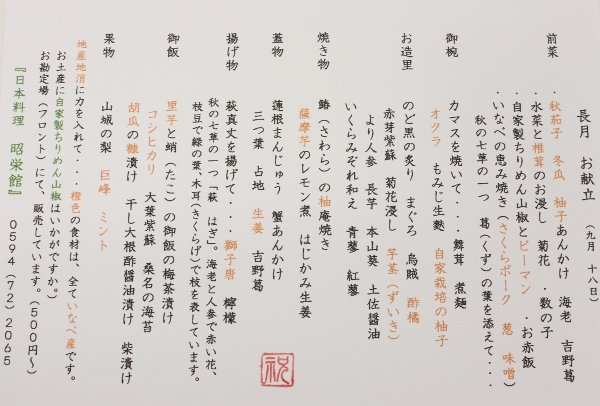 長月 お献立 (九月 十八日)
前菜 ・秋茄子 冬瓜 柚子あんかけ 海老 吉野葛
・水菜と椎茸のお浸し 菊花 ・数の子
・自家製ちりめん山椒とピーマン ・お赤飯
・いなべの恵み焼き(さくらポーク 葱 味噌)
秋の七草の一つ 葛(くず)の葉を添えて・・・
御椀 カマスを焼いて・・・ 舞茸 煮麺
オクラ もみじ生麩 自家栽培の柚子
お造里 のど黒の炙り まぐろ 烏賊 酢橘
赤芽紫蘇 菊花浸し 芋茎(ずいき)
より人参 長芋 本山葵 土佐醤油
いくらみぞれ和え 青蓼 紅蓼
焼き物 鰆(さわら)の柚庵焼き
薩摩芋のレモン煮 はじかみ生姜
蓋物 蓮根まんじゅう 蟹あんかけ
三つ葉 占地 生姜 吉野葛
揚げ物 萩真丈を揚げて・・・・獅子唐 檸檬
秋の七草の一つ「萩 はぎ」。海老と人参で赤い花、
枝豆で緑の葉、木耳(きくらげ)で枝を表しています。
御飯 里芋と蛸(たこ)の御飯の梅茶漬け
コシヒカリ 大葉紫蘇 桑名の海苔
胡瓜の糠漬け 干し大根酢醤油漬け 柴漬け
果物 山城の梨 巨峰 ミント
地産地消に力を入れて・・・橙色の食材は、全ていなべ産です。
お土産に自家製ちりめん山椒はいかがですか。
お勘定場(フロント)にて、販売しています。(500円〜)
『日本料理 昭栄館』 0594(72)2065
祝